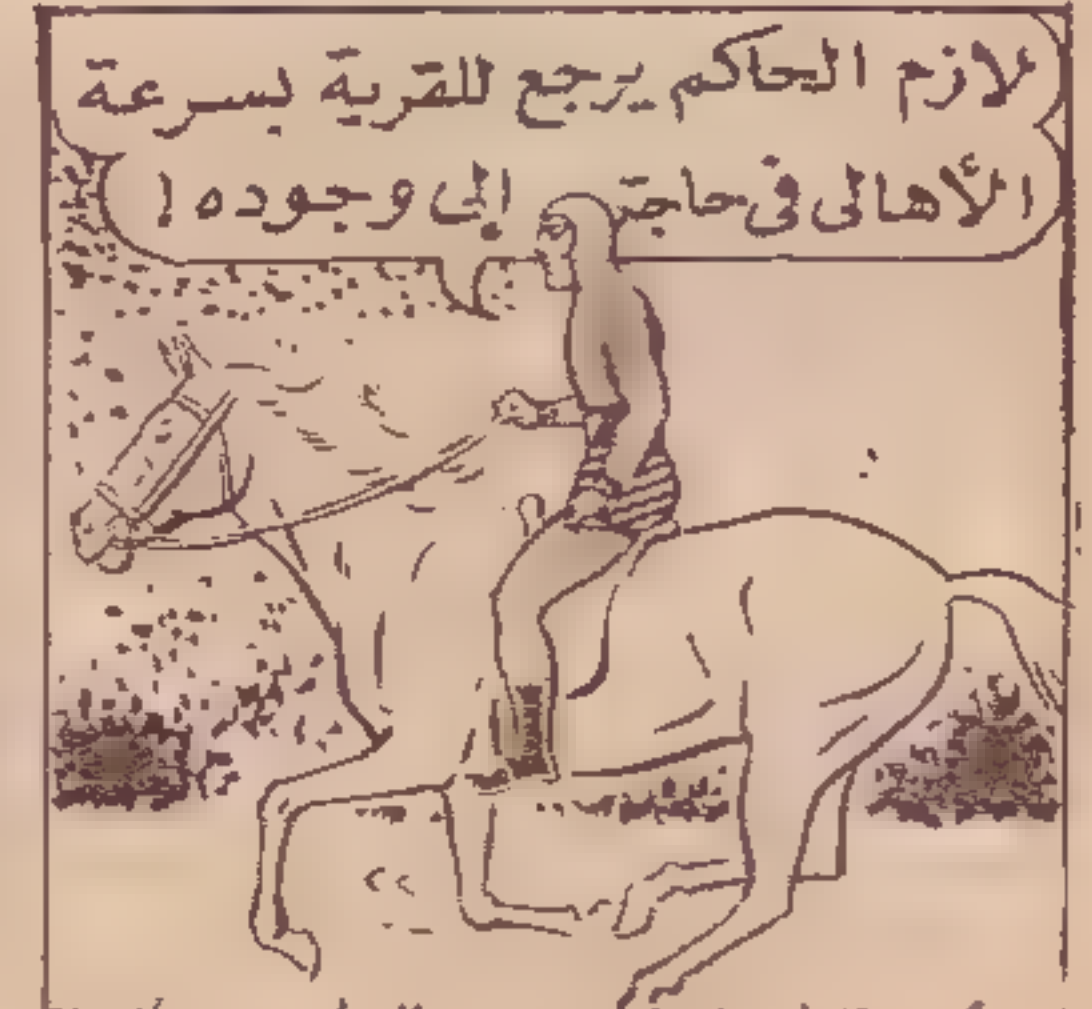 لازم الحاكم يرجع للقرية بسرعة
الأهالى فى حاجة إلى وجوده !